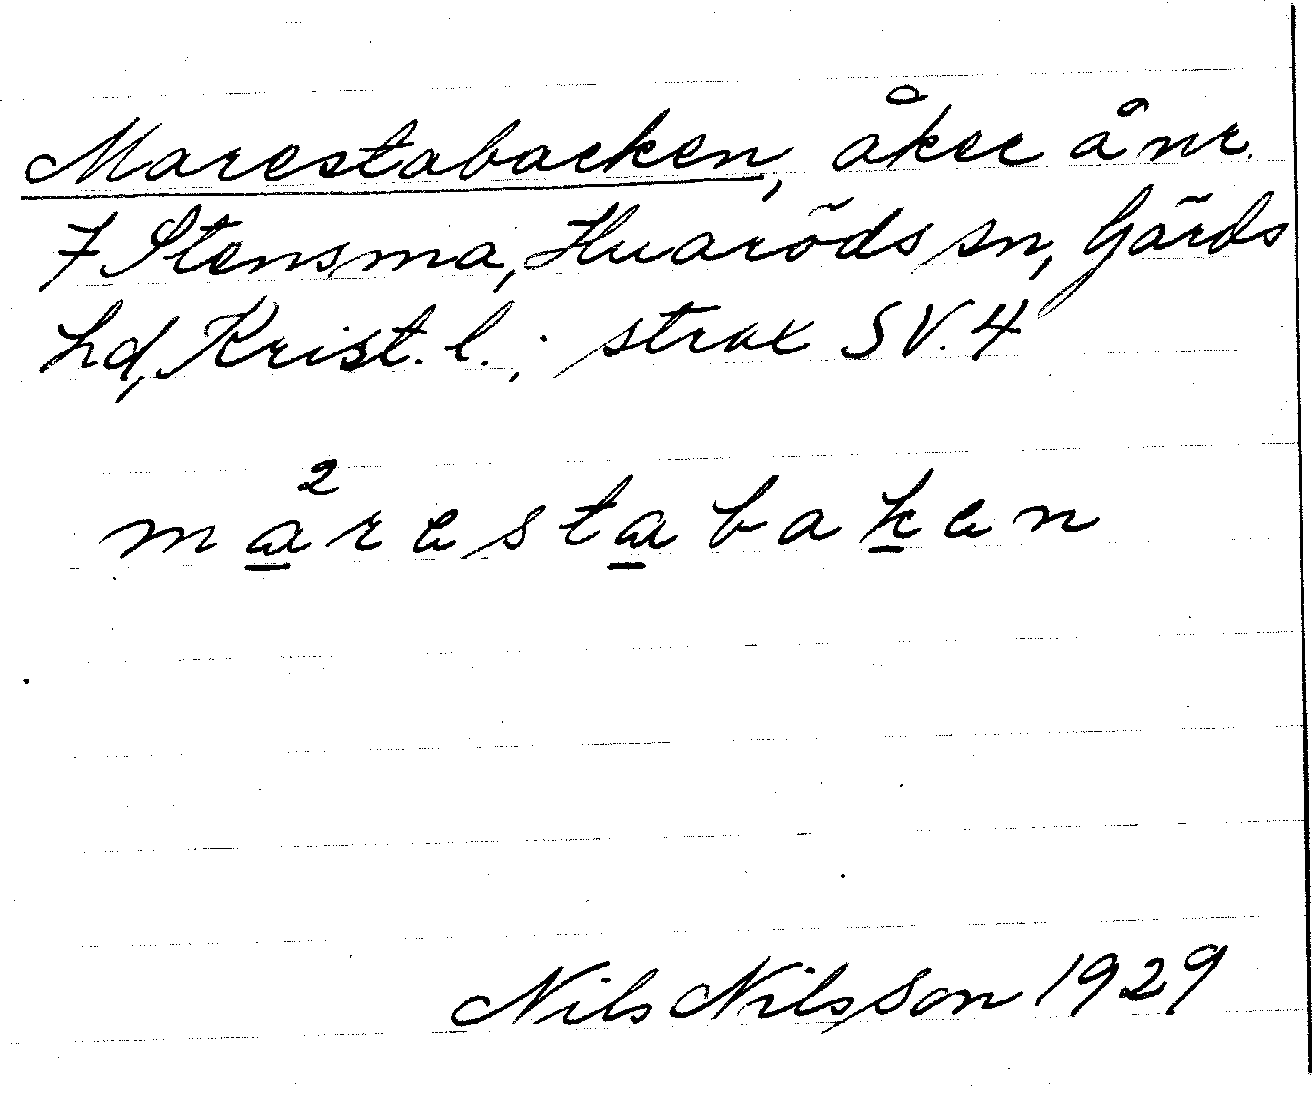 Marestabacken, åker å nr.
7 Stensma, Huaröds sn, Gärds
hd, Krist. l.; strax SV. 4
2
marestabaken
Nils Nilsson 1929